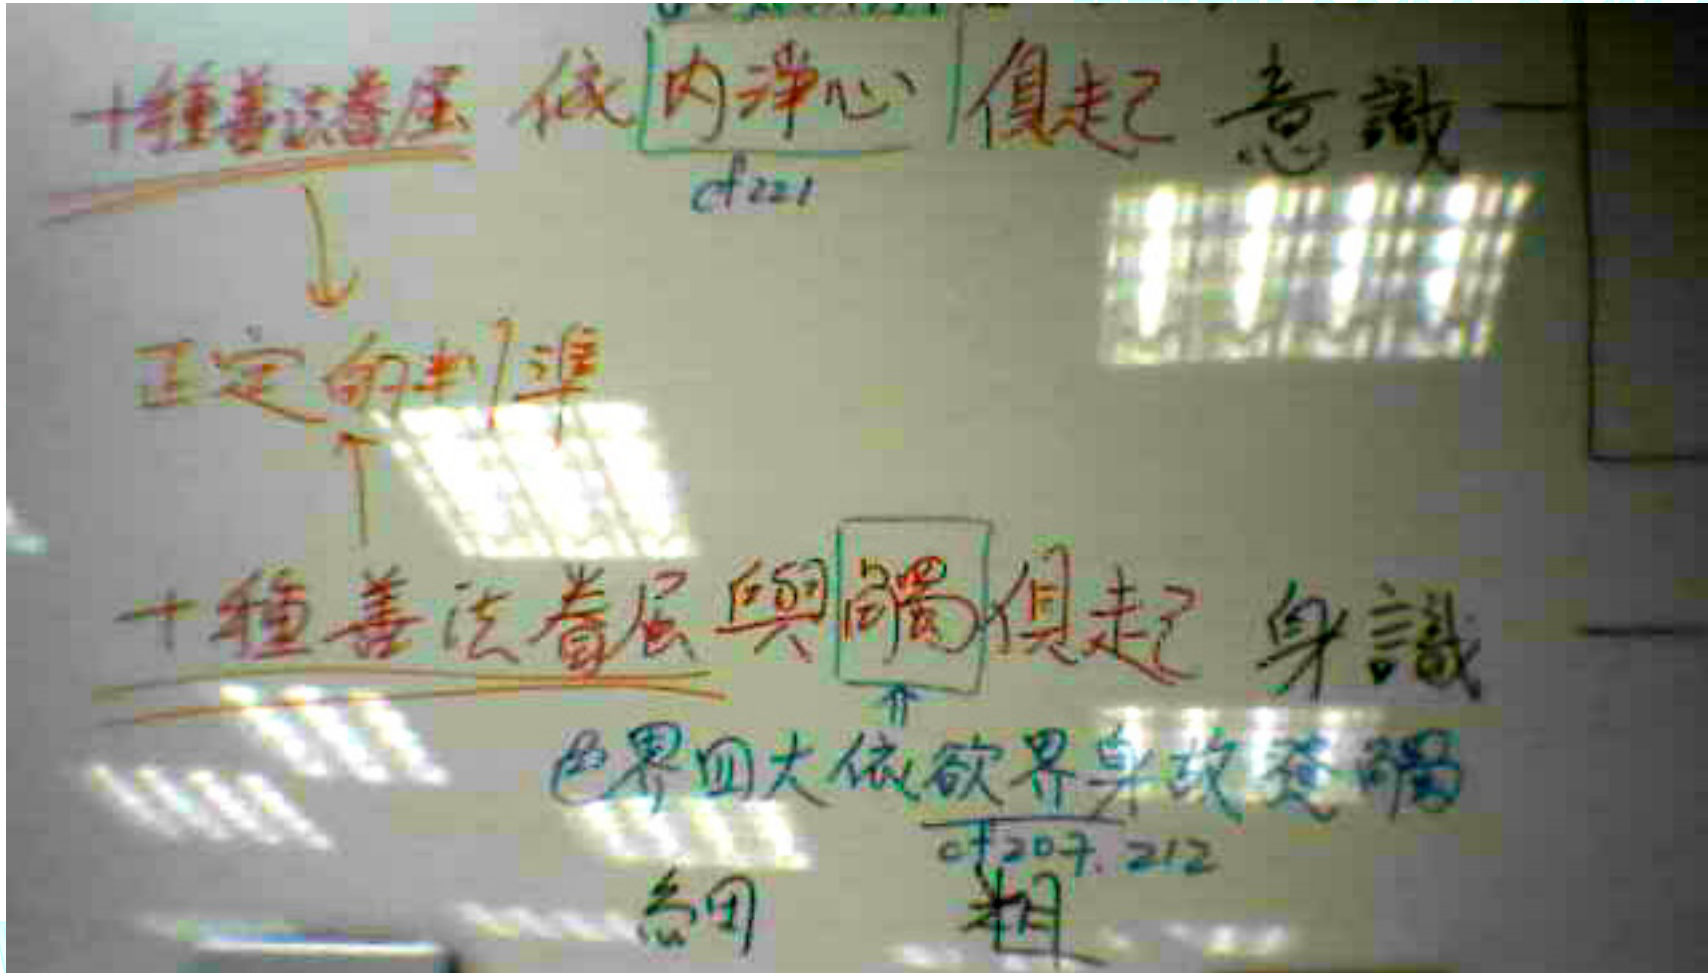 十種善法眷屬 依內淨心俱起 意識
cf 221
正定的判準
十種善法眷屬與觸俱起 身識
色界四大依欲界身故發觸
cf 207. 212
細 粗